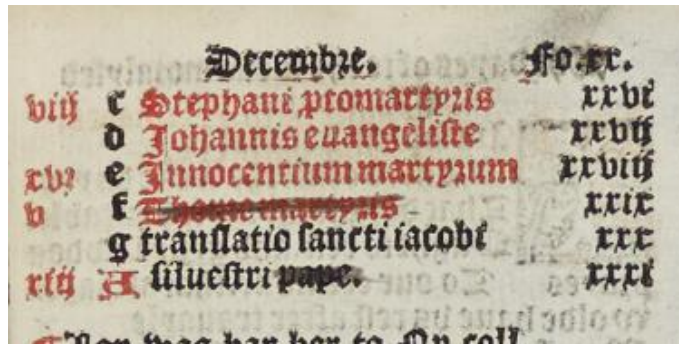 Decembre. Fo.xx.
viij c Stephani promartyris xxvi
d Johannis euangeliste xxvij
xvi e Innocentium martyrum xxviij
v f Thome martyris xxix
g translatio sancti iacobi xxx
xiij A siluestri pape. xxxi